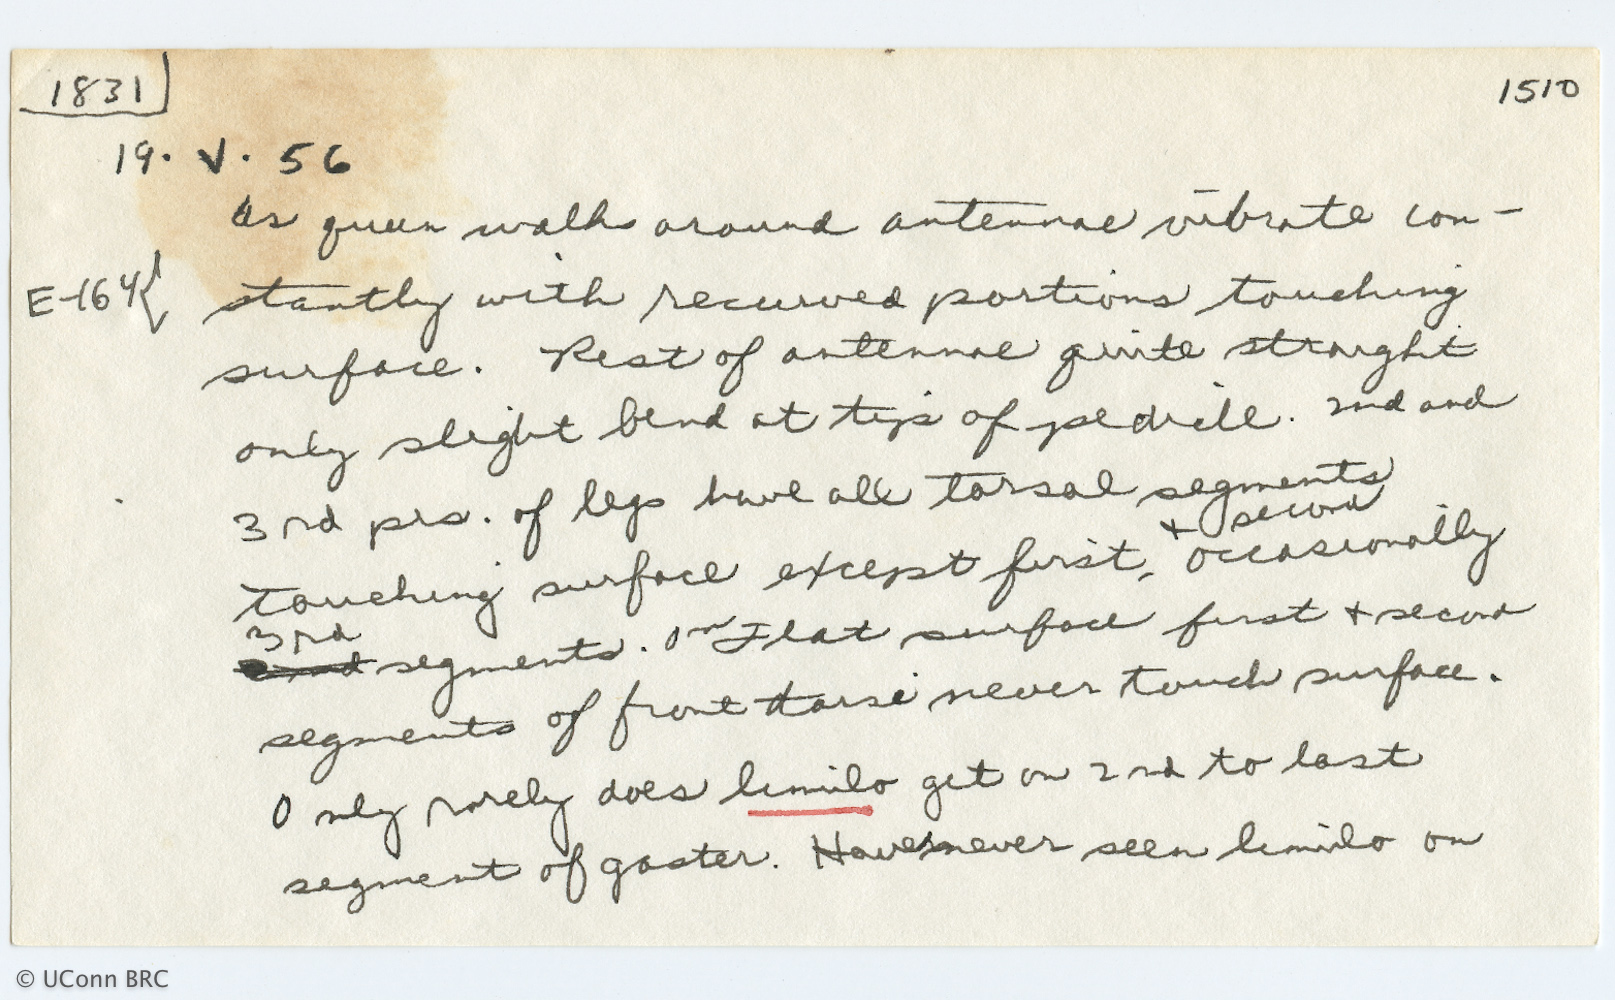 1831
1510
19. V. 56
As queen walks around antennae vibrate con-
E-164
stantly with recurved portions touching
surface. Rest of antennae quite straight
only slight bend at tip of pedicle. 2nd and
3rd prs. of legs have all tarsal segments
+ second
touching surface except first, occasionally
3rd
segments. On flat surface first + second
segments of front tarsi never touch surface.
Only rarely does limulo get on 2nd to last
segment of gaster. Have never seen limulo on
© UConn BRC